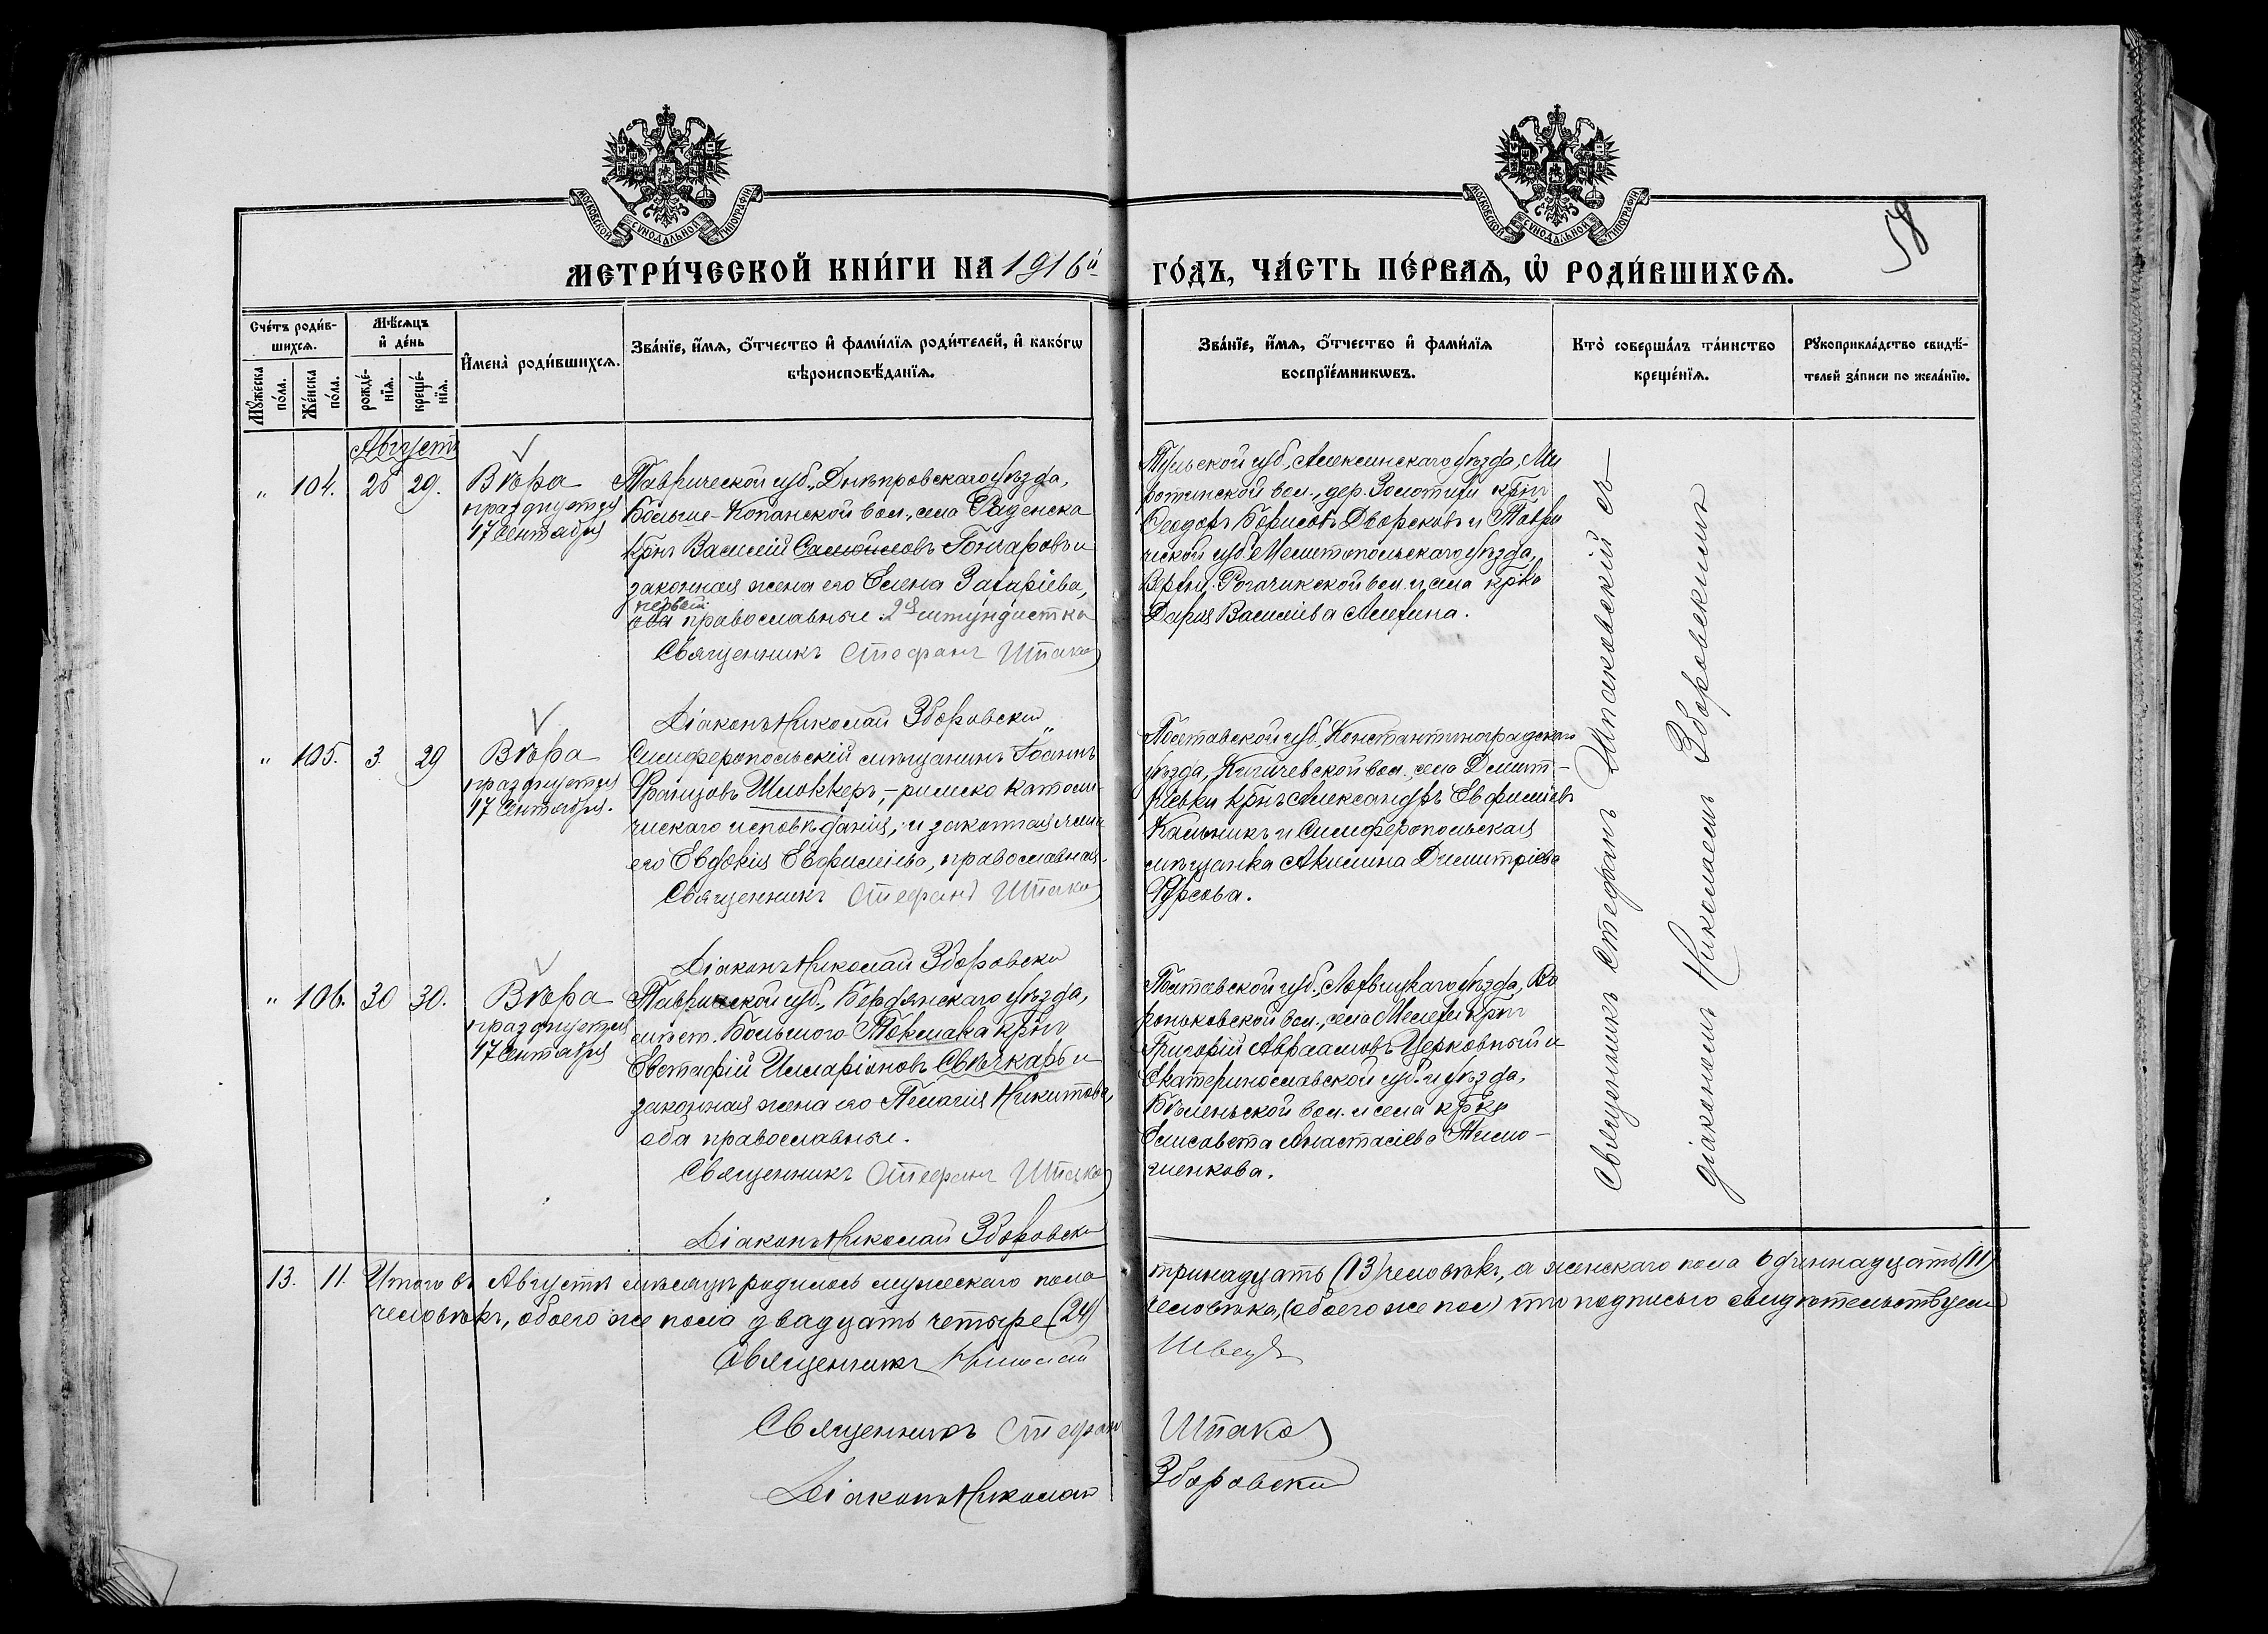 МОСКОВСКОЙ СѴНОДАЛЬНОЙ ТИПОГРАФІИ
МОСКОВСКОЙ СѴНОДАЛЬНОЙ ТИПОГРАФІИ
58
МЕТРИ́ЧЕСКОЙ КНИ́ГИ НА 1916й ГО́ДЪ, ЧА́СТЬ ПЕ́РВАѦ, Ѡ҆ РОДИ́ВШИХСѦ.
Сче́тъ роди́в-
шихсѧ.
Мѣ́сѧцъ
и҆ де́нь
Мꙋ́жеска
по́ла.
Же́нска
по́ла.
рожде́-
нїѧ.
креще́-
нїѧ.
И҆мена̀ роди́вшихсѧ.
Зва́нїе, и҆́мѧ, ѻ҆́тчество и҆ фами́лїѧ роди́телей, и҆ како́гѡ
вѣроисповѣ́данїѧ.
Зва́нїе, и҆́мѧ, ѻ҆́тчество и҆ фами́лїѧ
воспрїе́мникѡвъ.
Кто̀ соверша́лъ та́инство
креще́нїѧ.
Рꙋкоприкла́дство свидѣ́-
телей за́писи по жела́нїю.
Августъ
" 104. 25 29. Вѣра
празднуется
17 Сентября
Таврической губ., Днѣпровскаго уѣзда,
Больше-Копанской вол., села Раденска
крнъ Василій Самойловъ Гончаровъ и
законная жена его Елена Захаріева,
первый
оба православные 2я штундистка
Священникъ Стефанъ Шпаков
Діаконъ Николай Зборовски
Тульской губ., Алексинскаго уѣзда, Ми
ротинской вол., дер. Золотихи крнъ
Ѳеодоръ Борисовъ Дворсковъ и Таври
ческой губ. Мелитопольскаго уѣзда,
Верхн. Рогачикской вол. и села крка
Дарія Васильева Алехина.
" 105. 3. 29 Вѣра
празднуется
17 Сентября.
Симферопольскій мѣщанинъ Іоаннъ
Францовъ Шлоккеръ, - римско католи-
ческаго исповѣданія, и законная жена
его Евдокія Евфиміева, православная.
Священникъ Стефанъ Шпаков
Діаконъ Николай Зборовски
Полтавской губ., Константиноградскаго
уѣзда, Кигичевской вол., села Дмит-
ріевки крнъ Александръ Евфиміевъ
Кальникъ и Симферопольская
мѣщанка Акилина Димитріева
Фурсова.
" 106. 30 30. Вѣра
празднуется
17 Сентября
Таврической губ., Бердянскаго уѣзда,
мѣст. Большого Токмака крнъ
Евстафій Илларіоновъ Свѣчкарь и
законная жена его Пелагія Никитова,
оба православные.
Священникъ Стефанъ Шпаков
Діаконъ Николай Зборовски
Полтавской губ., Лохвицкаго уѣзда, Во
роньковской вол., села Мелехи крнъ
Григорій Авраамовъ Церковный и
Екатеринославской губ. и уѣзда,
Бѣленьской вол. и села крка
Елисавета Анастасіева Тимо-
шенкова.
Священникъ Стефанъ Шпаковскій съ
діакономъ Николаемъ Зборовскимъ
13. 11. Итого въ Августѣ мѣсяцѣ родилось мужескаго пола тринадцать (13) человѣкъ, а женскаго пола одиннадцать (11)
человѣкъ, обоего же пола двадцать четыре (24) человѣка, (обоего же пол) что подписью свидѣтельствуемъ
Священникъ Николай Швецъ
Священникъ Стефан Шпаков
Діаконъ Николай Зборовски